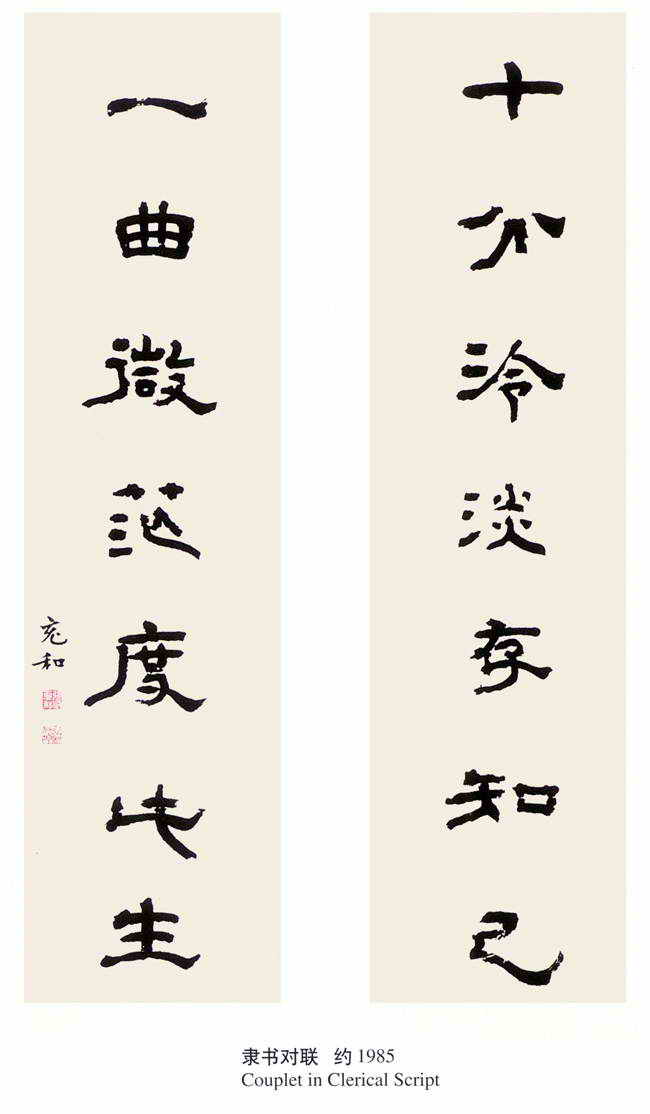 十分冷淡存知己
一曲微茫度此生
充和
隶书对联 约 1985
Couplet in Clerical Script